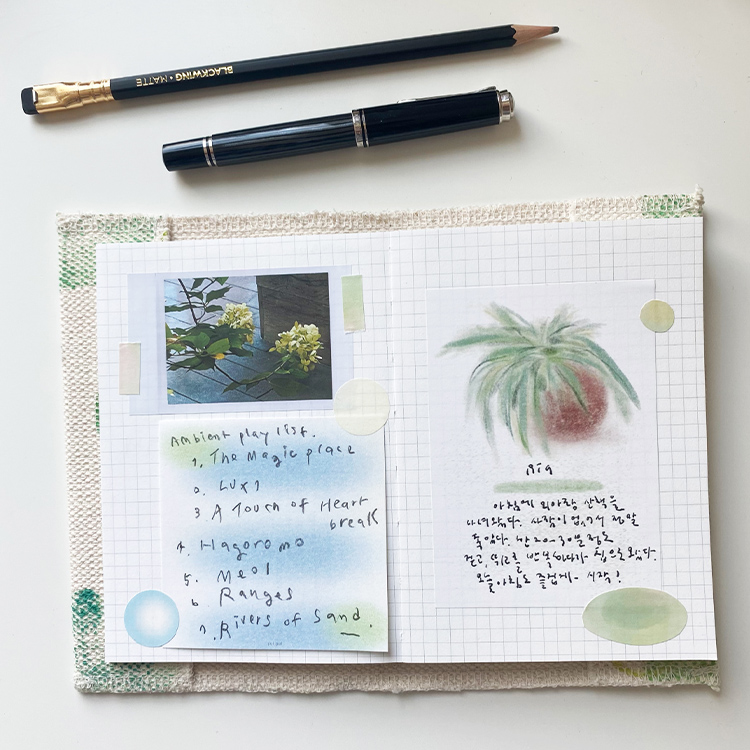 BLACKWING • MATTE
Ambient play list.
1. The Magic place
2. LUX1
3 A Touch of Heart
break
4. Hagoromo
5. Meol
6 Ranges
7. Rivers of Sand.
아침에 리아랑 산책을
다녀왔다. 사람이 없어서 정말
좋았다. 한 20~30분 정도
걷고, 반복하다가 집으로 왔다.
오늘 아침도 즐겁게~ 시작!